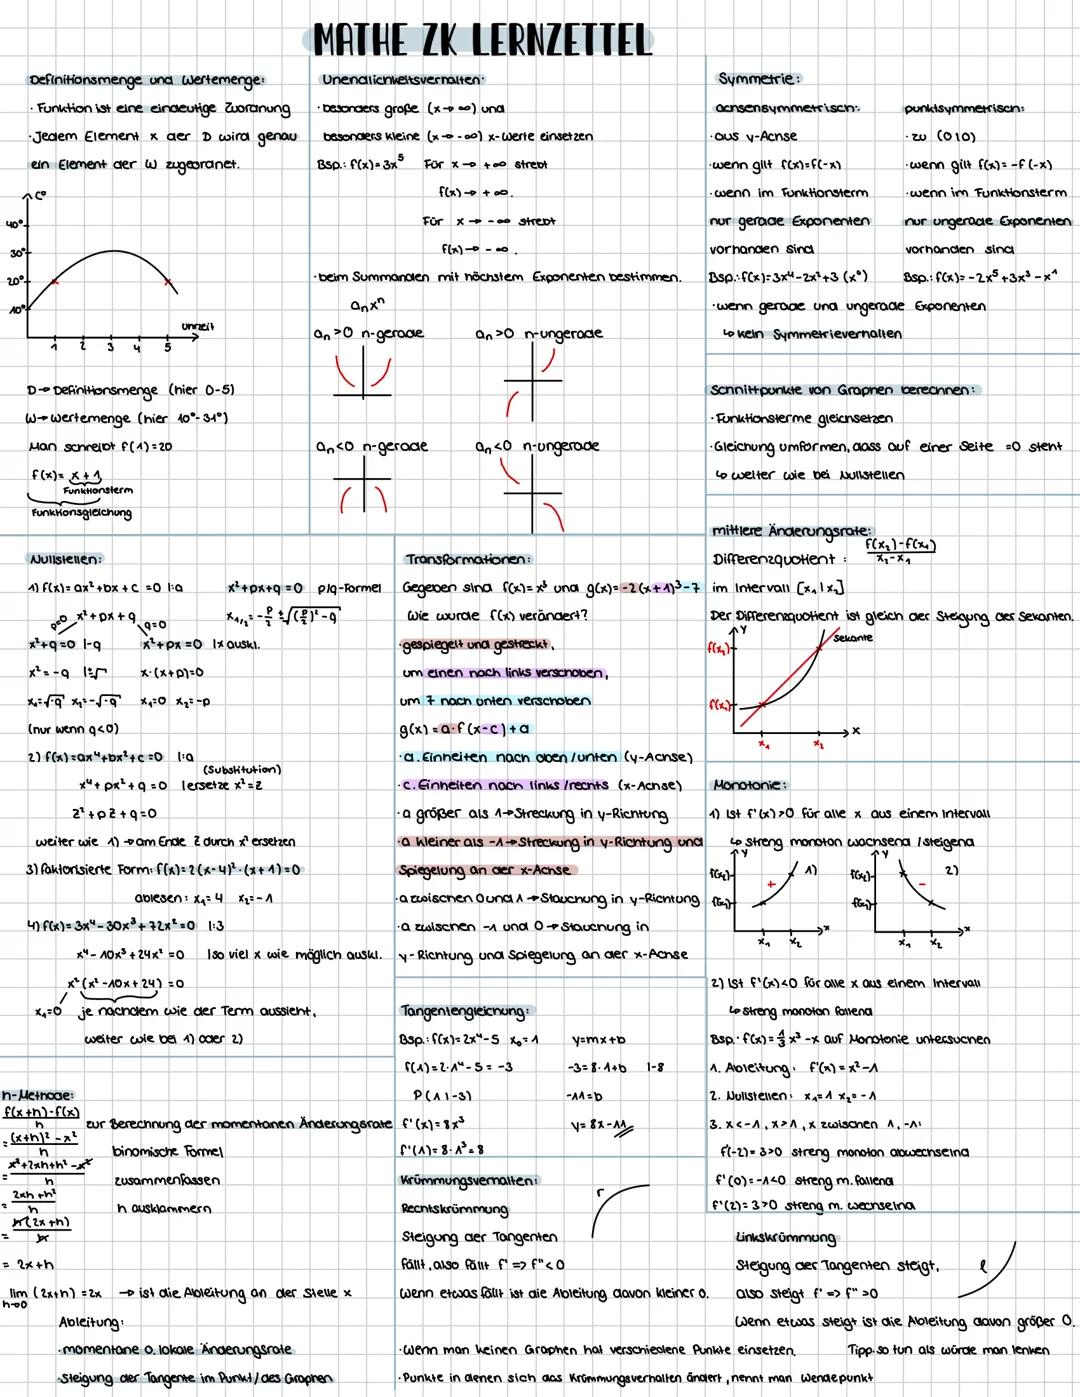 MATHE ZK LERNZETTEL
Definitionsmenge und Wertemenge:
· Funktion ist eine eindeutige Zuordnung
· Jedem Element x der D wird genau
ein Element der W zugeordnet.
C°
40°
30°
20°
10°
1 2 3 4 5
Uhrzeit
D→ Definitionsmenge (hier 0-5)
W→ Wertemenge (hier 10°-31°)
Man schreibt f(1)=20
f(x)= x+1
Funktionsterm
Funktionsgleichung
Unendlichkeitsverhalten:
· besonders große (x→∞) und
besonders kleine (x→-∞) x-Werte einsetzen
Bsp.: f(x)=3x⁵ Für x→ +∞ strebt
f(x)→ +∞.
Für x→ -∞ strebt
f(x)→ -∞.
· beim Summanden mit höchstem Exponenten bestimmen.
aₙxⁿ
aₙ>0 n-gerade aₙ>0 n-ungerade
aₙ<0 n-gerade aₙ<0 n-ungerade
Symmetrie:
achsensymmetrisch:
· aus y-Achse
· wenn gilt f(x)=f(-x)
· wenn im Funktionsterm
nur gerade Exponenten
vorhanden sind
Bsp.: f(x)=3x⁴-2x²+3 (x⁰)
punktsymmetrisch:
· zu (0|0)
· wenn gilt f(x)=-f(-x)
· wenn im Funktionsterm
nur ungerade Exponenten
vorhanden sind
Bsp.: f(x)=-2x⁵+3x³-x¹
· wenn gerade und ungerade Exponenten
↳ kein Symmetrieverhalten
Schnittpunkte von Graphen berechnen:
· Funktionsterme gleichsetzen
· Gleichung umformen, dass auf einer Seite =0 steht
↳ weiter wie bei Nullstellen
mittlere Änderungsrate:
Differenzquotient: f(x₂)-f(x₁) / x₂-x₁
im Intervall [x₁|x₂]
Der Differenzquotient ist gleich der Steigung der Sekanten.
y
Sekante
f(x₂)
f(x₁)
x₁ x₂ x
Nullstellen:
1) f(x)=ax²+bx+c=0 |:a
x²+px+q
p=0 q=0
x²+q=0 |-q x²+px=0 |x auskl.
x²=-q |±√ x·(x+p)=0
x₁=√-q x₂=-√-q x₁=0 x₂=-p
(nur wenn q<0)
x²+px+q=0 p/q-Formel
x₁/₂=-p/2 ±√((p/2)²-q)
2) f(x)=ax⁴+bx²+c=0 |:a
(Substitution)
x⁴+px²+q=0 |ersetze x²=z
z²+pz+q=0
weiter wie 1) → am Ende z durch x² ersetzen
3) faktorisierte Form: f(x)=2(x-4)²·(x+1)=0
ablesen: x₁=4 x₂=-1
4) f(x)=3x⁴-30x³+72x²=0 |:3
x⁴-10x³+24x²=0 |so viel x wie möglich auskl.
x²(x²-10x+24)=0
x₁=0 je nachdem wie der Term aussieht,
weiter wie bei 1) oder 2)
Transformationen:
Gegeben sind f(x)=x³ und g(x)=-2(x+1)³-7
Wie wurde f(x) verändert?
· gespiegelt und gestreckt,
um einen nach links verschoben,
um 7 nach unten verschoben
g(x)=a·f(x-c)+d
· d. Einheiten nach oben/unten (y-Achse)
· c. Einheiten nach links/rechts (x-Achse)
· a größer als 1→ Streckung in y-Richtung
· a kleiner als -1→ Streckung in y-Richtung und
Spiegelung an der x-Achse
· a zwischen 0 und 1 → Stauchung in y-Richtung
· a zwischen -1 und 0 → Stauchung in
y-Richtung und Spiegelung an der x-Achse
Monotonie:
1) Ist f'(x)>0 für alle x aus einem Intervall
↳ streng monoton wachsend/steigend
y
f(x₂)
f(x₁)
+
1)
x₁ x₂ x
y
f(x₁)
f(x₂)
-
2)
x₁ x₂ x
2) Ist f'(x)<0 für alle x aus einem Intervall
↳ streng monoton fallend
Bsp.: f(x)=1/3 x³-x auf Monotonie untersuchen
1. Ableitung: f'(x)=x²-1
2. Nullstellen: x₁=1 x₂=-1
3. x<-1, x>1, x zwischen 1, -1:
f'(-2)=3>0 streng monoton abwechselnd
f'(0)=-1<0 streng m. fallend
f'(2)=3>0 streng m. wechselnd
Tangentengleichung:
Bsp.: f(x)=2x⁴-5 x₀=1 y=mx+b
f(1)=2·1⁴-5=-3 -3=8·1+b |-8
P(1|-3) -11=b
f'(x)=8x³ y=8x-11
f'(1)=8·1³=8
h-Methode:
f(x+h)-f(x) / h zur Berechnung der momentanen Änderungsrate
= (x+h)²-x² / h binomische Formel
= x²+2xh+h²-x² / h zusammenfassen
= 2xh+h² / h h ausklammern
= h(2x+h) / h
= 2x+h
lim h→0 (2x+h)=2x → ist die Ableitung an der Stelle x
Ableitung:
· momentane o. lokale Änderungsrate
· Steigung der Tangente im Punkt/des Graphen
Krümmungsverhalten:
Rechtskrümmung
r
Steigung der Tangenten
fällt, also fällt f' => f''<0
Wenn etwas fällt ist die Ableitung davon kleiner 0.
Linkskrümmung
Steigung der Tangenten steigt,
l
also steigt f' => f''>0
Wenn etwas steigt ist die Ableitung davon größer 0.
· Wenn man keinen Graphen hat verschiedene Punkte einsetzen.
Tipp: so tun als würde man lenken
· Punkte in denen sich das Krümmungsverhalten ändert, nennt man Wendepunkt